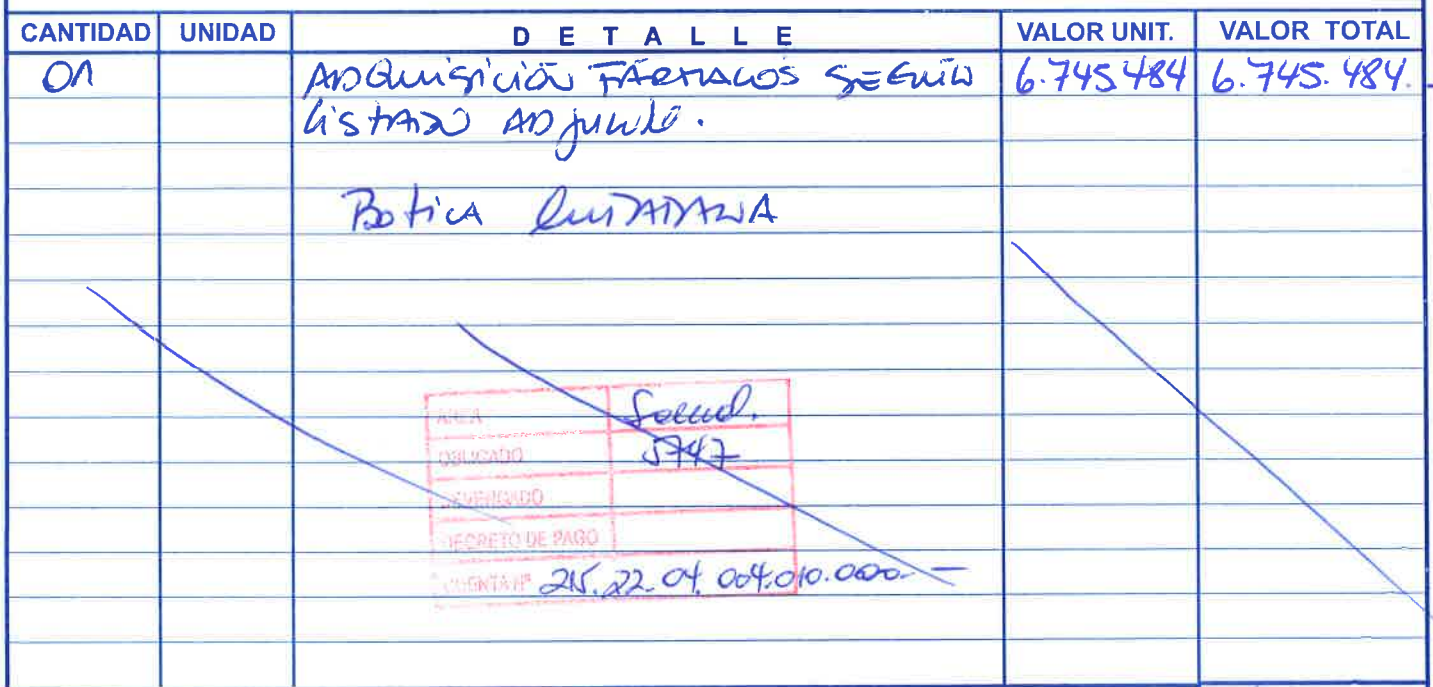 CANTIDAD UNIDAD DETALLE VALOR UNIT. VALOR TOTAL
01 ADQUISICIÓN FÁRMACOS SEGÚN 6.745.484 6.745.484.
LISTADO ADJUNTO.
BOTICA CIUDADANA
AREA Salud.
OBLIGADO 5747
DEVENGADO
DECRETO DE PAGO
CUENTA Nº 215.22.04.004.010.000.-